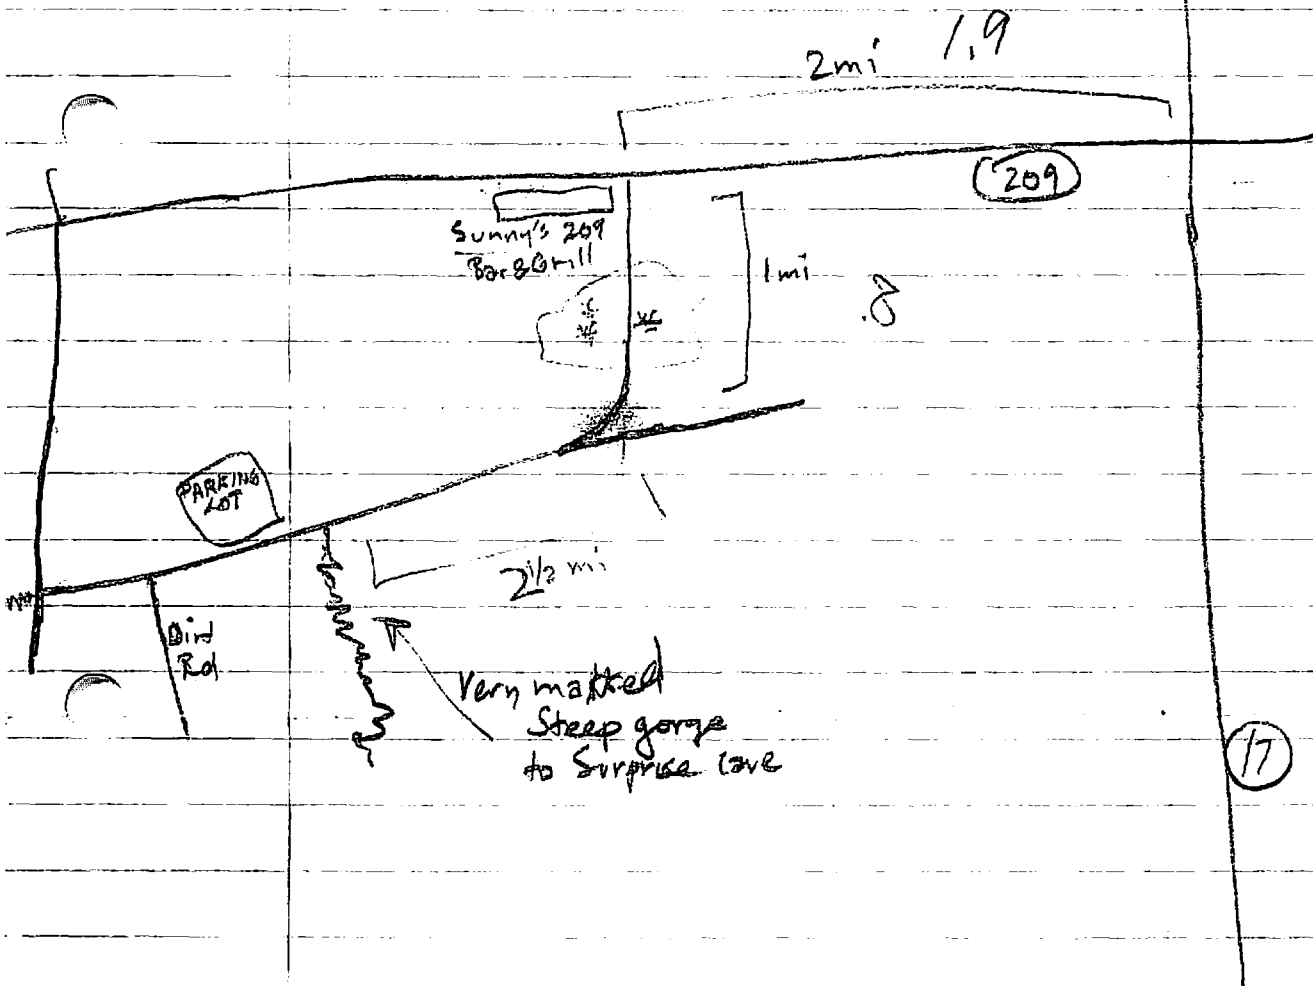 2mi 1.9
209
Sunny's 209
Bar & Grill
1mi
.8
PARKING
LOT
2 1/2 mi
Dirt
Rd
Very marked
Steep gorge
to Surprise Cave
17